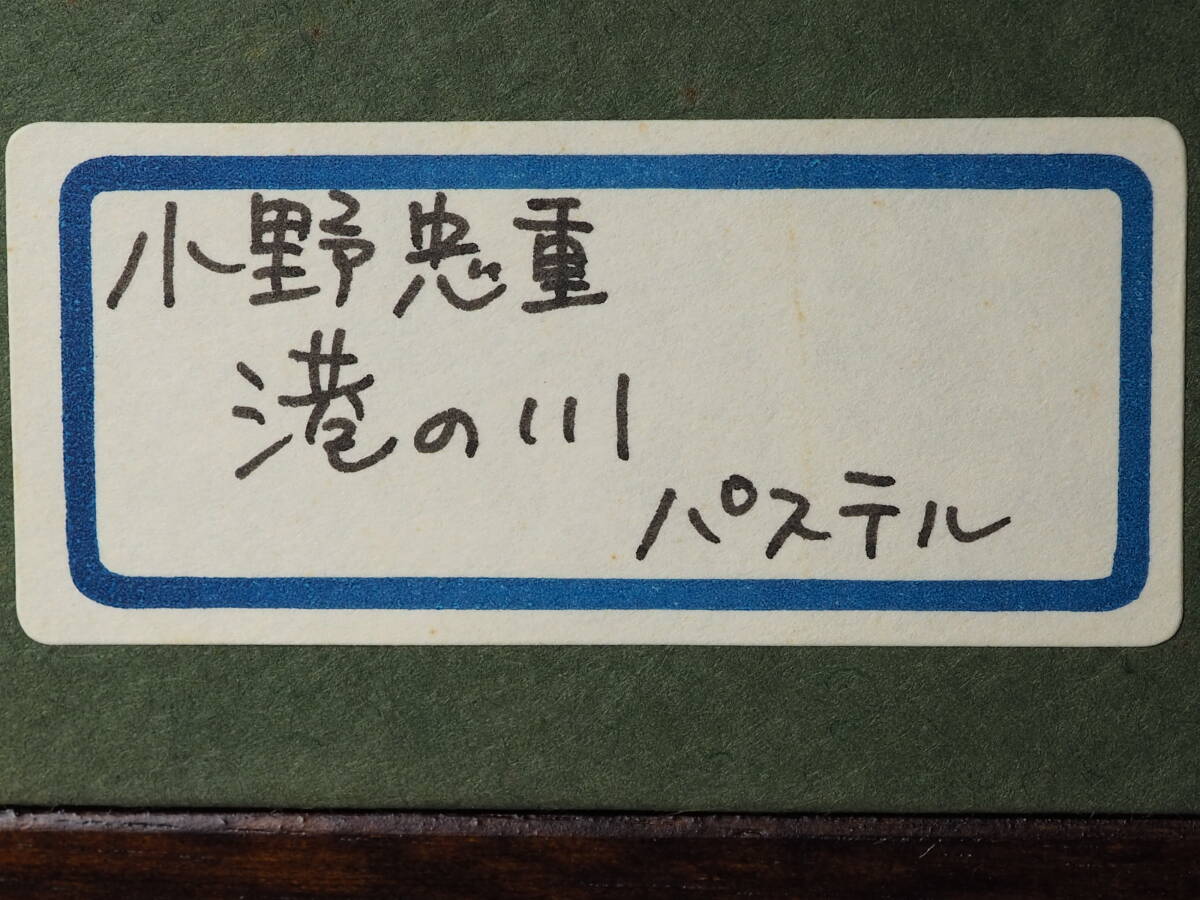 小野忠重
港の川
パステル